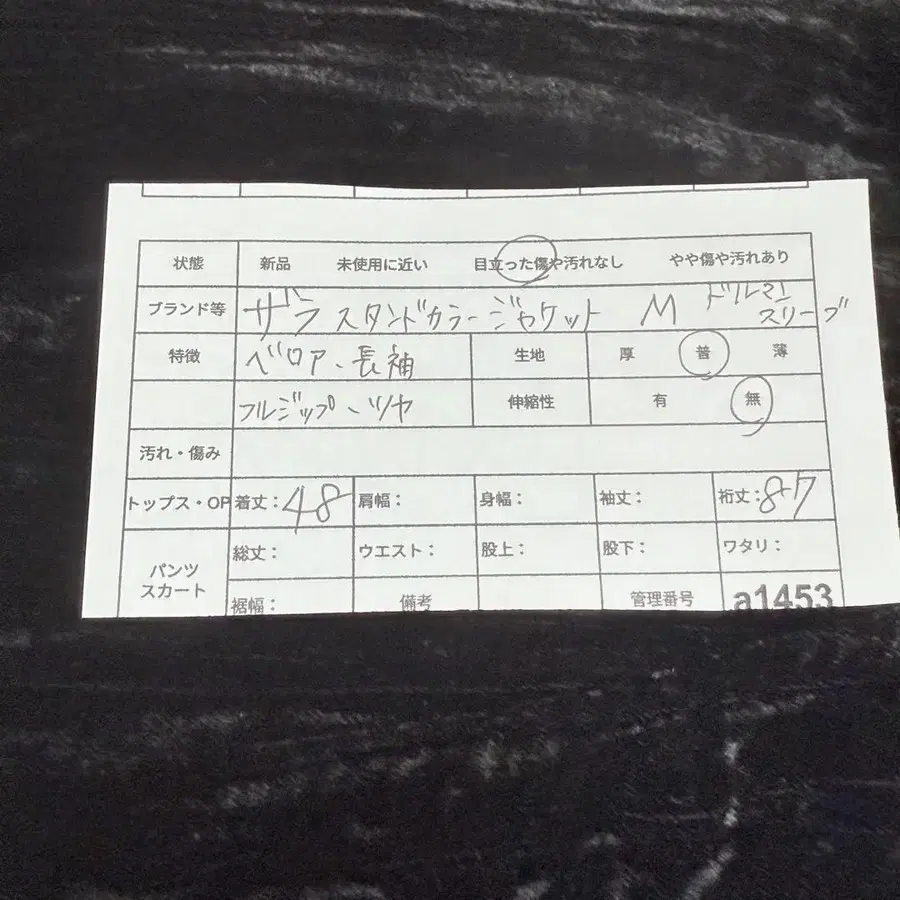 状態 新品 未使用に近い 目立った傷や汚れなし やや傷や汚れあり
ブランド等 ザラ スタンドカラージャケット M ドルマンスリーブ
特徴 ベロア、長袖 生地 厚 普 薄
フルジップ、ツヤ 伸縮性 有 無
汚れ・傷み
トップス・OP 着丈：48 肩幅： 身幅： 袖丈： 裄丈：87
パンツ スカート 総丈： ウエスト： 股上： 股下： ワタリ：
裾幅： 備考 管理番号 a1453